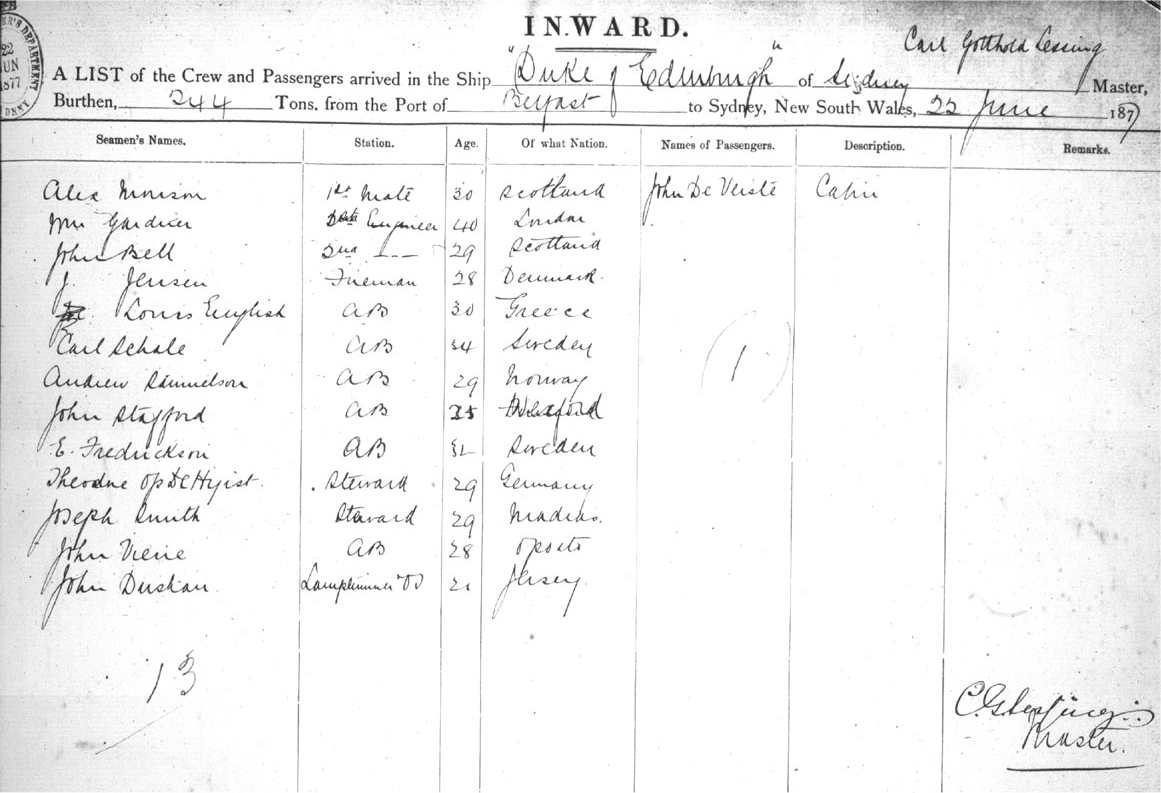 INWARD.
22
JUN
1877
Carl Gotthold Lessing
A LIST of the Crew and Passengers arrived in the Ship "Duke of Edinburgh" of Sydney Master,
Burthen, 244 Tons, from the Port of Belfast to Sydney, New South Wales, 22 June 1877
Seamen's Names. Station. Age. Of what Nation. Names of Passengers. Description. Remarks.
Alex Morison 1st Mate 30 Scotland John De Verste Cabin
Wm Gardner Engineer 40 London
John Bell 2nd 29 Scotland
J. Jensen Fireman 28 Denmark
Louis English AB 30 Greece
Carl Schale AB 34 Sweden
Andrew Samuelson AB 29 Norway
(1)
John Stafford AB 35 Wexford
E. Fredrickson AB Sweden
Theodore Op De Hyist. Steward 29 Germany
Joseph Smith Steward 29 Madras.
John Vierie AB 28 Oporto
John Duskan Lamptrimmer OS 21 Jersey
13
C. G. Lessing
Master.